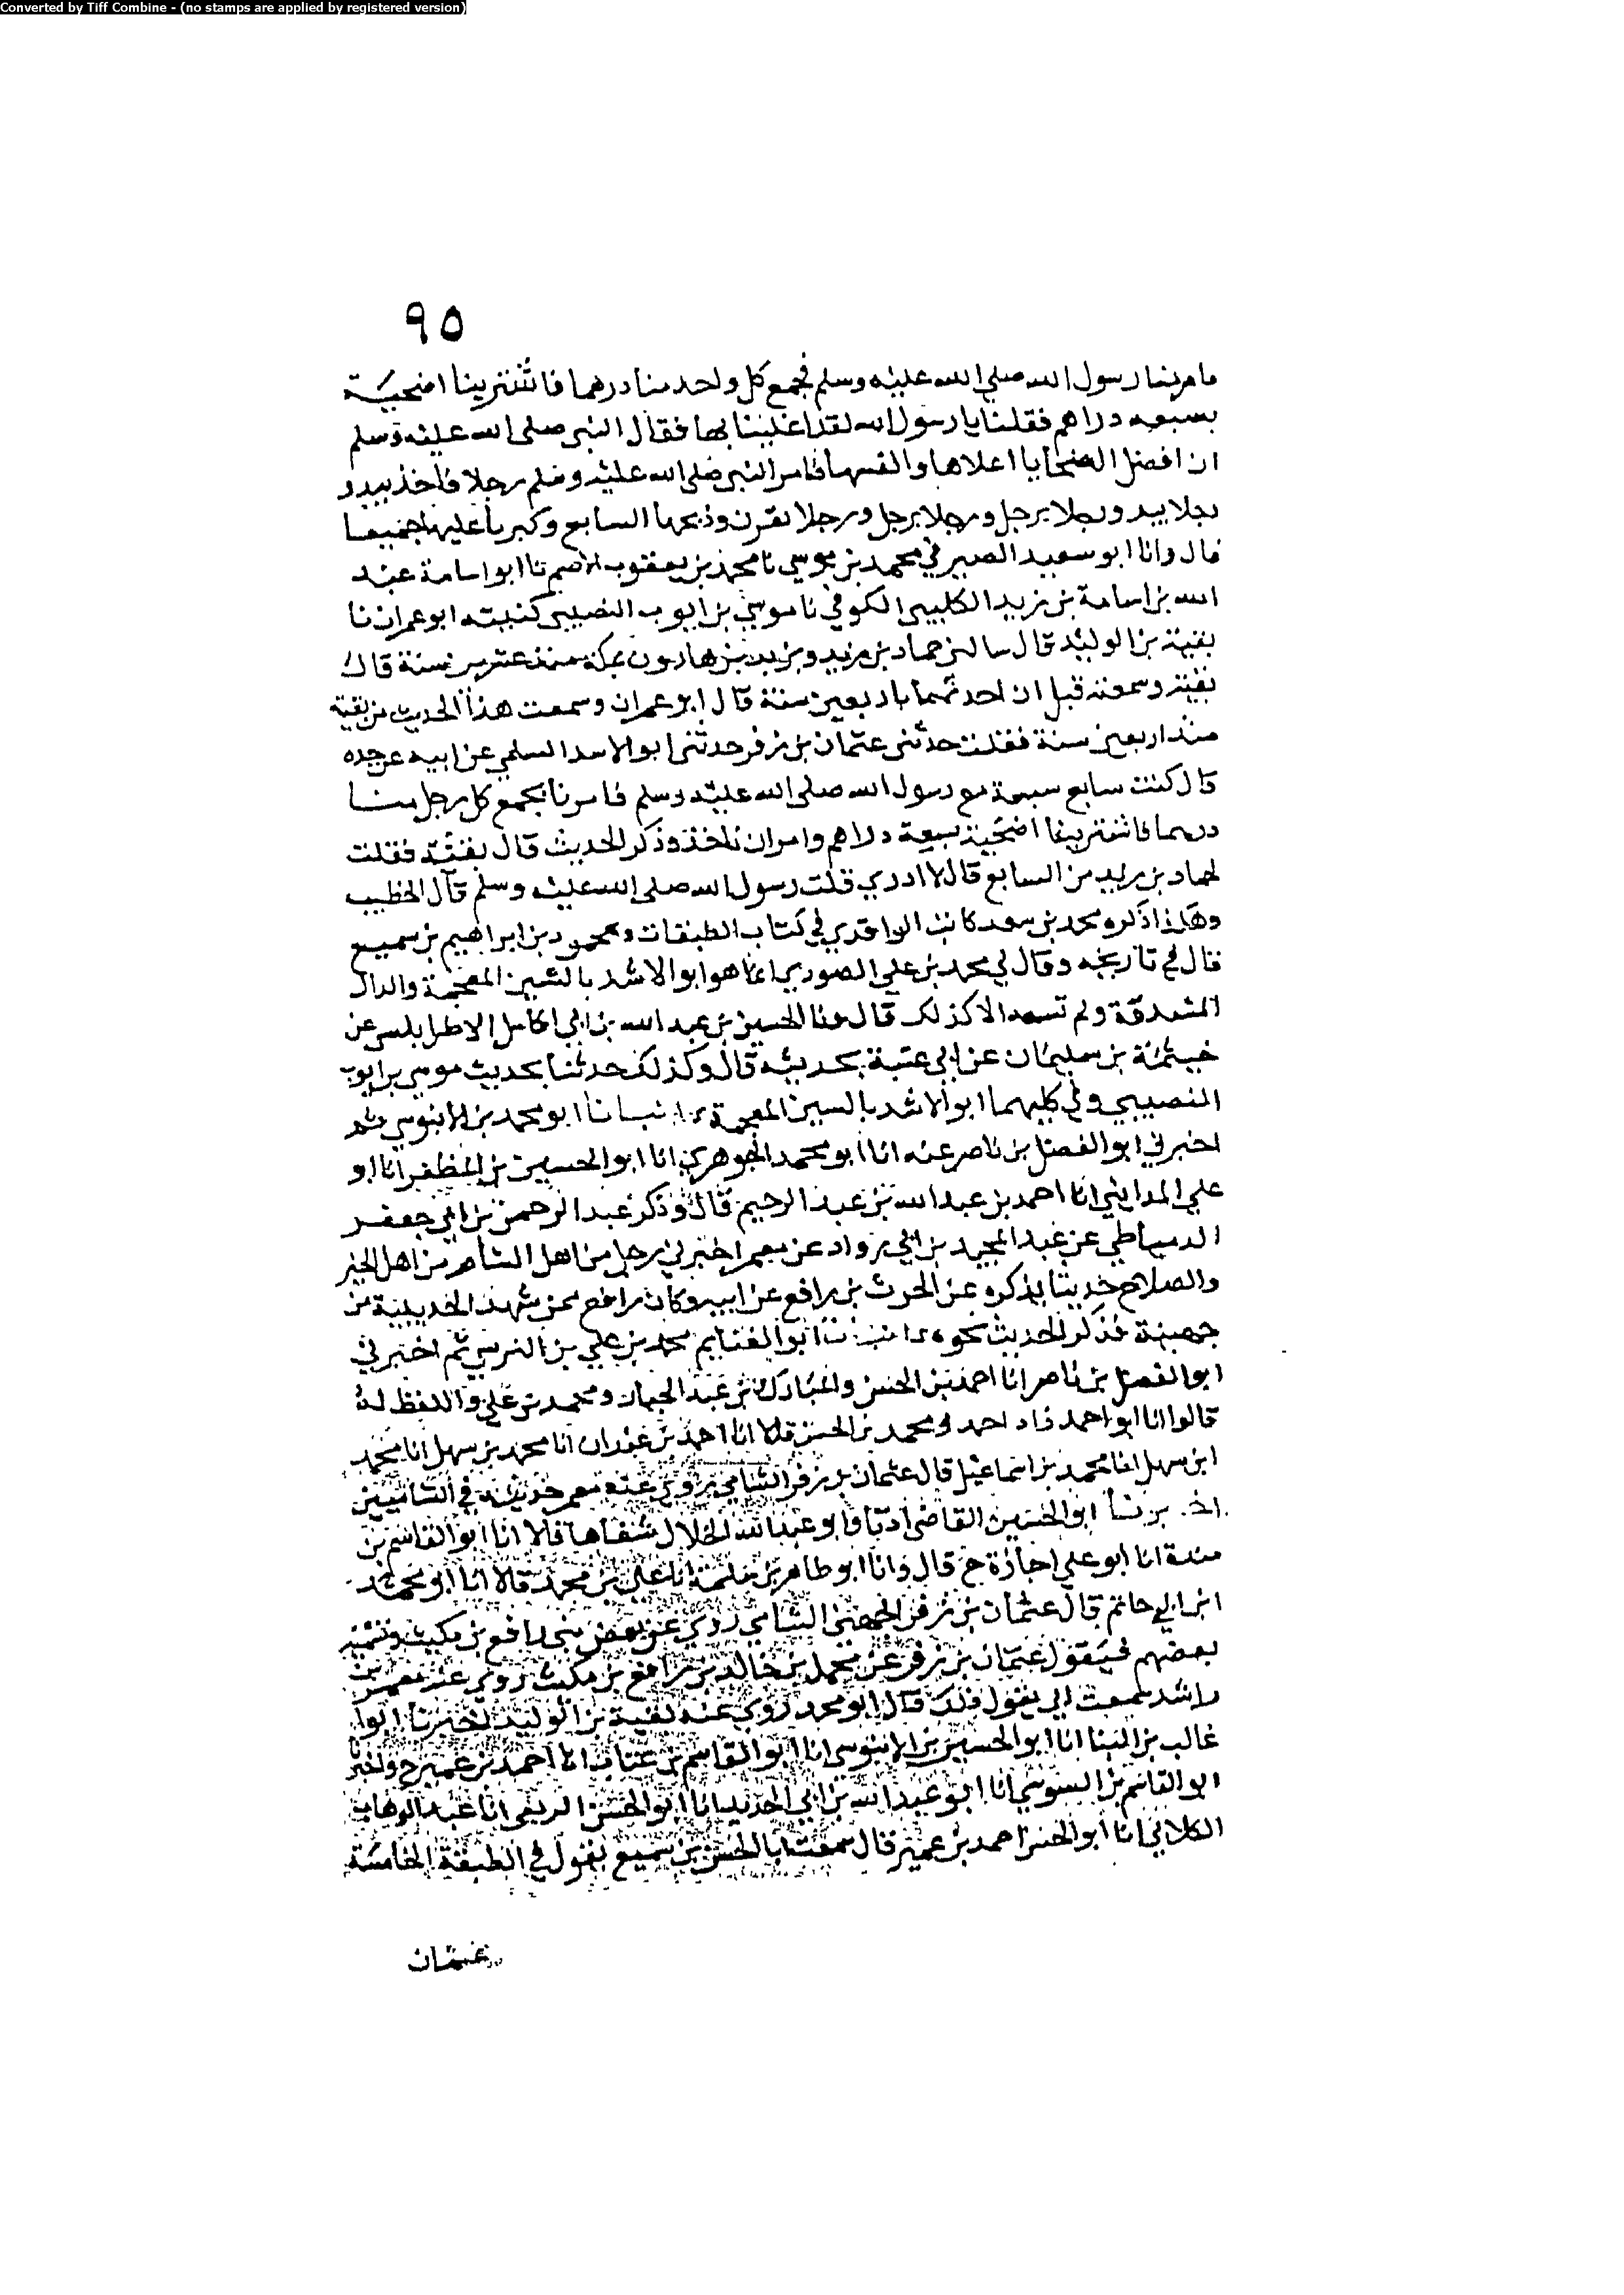 Converted by Tiff Combine - (no stamps are applied by registered version)
٩٥
فامرنا رسول الله صلى الله عليه وسلم فجمع كل واحد منا درهما فاشترينا اضحية
بسبعه دراهم فقلنا يا رسول الله لقد اغلينا بها فقال النبي صلى الله عليه وسلم
ان افضل الضحايا اعلاها وانفسها فامر النبي صلى الله عليه وسلم رجلا فاخذ بيد و
رجلا بيد ورجلا برجل ورجلا برجل ورجلا بقرن ورجلا بقرن وذبحها السابع وكبرنا عليها جميعا
قال وانا ابو سعيد الصيرفي محمد بن موسي نا محمد بن يعقوب الاصم نا ابو اسامة عبد
الله بن اسامة بن زيد الكلبي الكوفي نا موسي بن ايوب النصيبي كنيته ابو عمران نا
بقية بن الوليد قال سالني حماد بن زيد ويزيد بن هارون بمكة منذ عشرين سنة قال
بقية وسمعته قبل ان احدثهما باربعين سنة قال ابو عمران وسمعت هذا الحديث من بقية
منذ اربعين سنة فقلت حدثني عثمان بن زفر حدثني ابو الاسد السلمي عن ابيه عن جده
قال كنت سابع سبعة مع رسول الله صلى الله عليه وسلم فامرنا بجمع كل رجل منا
درهما فاشترينا اضحية بسبعة دراهم وامر ان ناخذ وذكر الحديث قال بقية فقلت
لحماد بن زيد من السابع قال لا ادري قلت رسول الله صلى الله عليه وسلم قال الخطيب
وهكذا ذكره محمد بن سعد كاتب الواقدي في كتاب الطبقات ومحمود بن ابراهيم بن سميع
قال في تاريخه وقال لي محمد بن علي الصوري انما هو ابو الاشد بالشين المعجمة والدال
المشددة ولم نسمعه الا كذلك قال لنا الحسين بن عبد الله بن ابي كامل الاطرابلسي عن
خيثمة بن سليمان عن ابي عتبة بحديثه قال وكذلك حدثنا بحديث موسي بن ايوب
النصيبي وفي كليهما ابو الاشد بالشين المعجمة انبانا ابو محمد بن الابنوسي ثم
اخبرني ابو الفضل بن ناصر عنه انا ابو محمد الجوهري انا ابو الحسين بن المظفر انا ابو
علي المدايني انا احمد بن عبد الله بن عبد الرحيم قال وذكر عبد الرحمن بن ابي جعفر
الدمياطي عن عبد المجيد بن ابي رواد عن معمر اخبرني رجل من اهل الشام من اهل الخير
والصلاح حديثا يذكره عن الحرث بن رافع عن ابيه وكان رافع ممن شهد الحديبية من
جهينة فذكر الحديث نحوه انبانا ابو الغنايم محمد بن علي بن النرسي ثم اخبرني
ابو الفضل بن ناصر انا احمد بن الحسن والمبارك بن عبد الجبار ومحمد بن علي واللفظ له
قالوا انا ابو احمد زاد احمد ومحمد بن الحسن قالا انا احمد بن عبدان انا محمد بن سهل انا محمد
ابن سهل انا محمد بن اسماعيل قال عثمان بن زفر الشامي روى عنه معمر حديثه في الشاميين
اخبرنا ابو الحسين القاضي اذنا وابو عبد الله الخلال شفاها قالا انا ابو القاسم بن
مندة انا ابو علي اجازة ح قال وانا ابو طاهر بن سلمة انا علي بن محمد قالا انا ابو محمد
ابن ابي حاتم قال عثمان بن زفر الجهني الشامي روى عن بعض بني رافع بن مكيث وتسميه
بعضهم فيقول عثمان بن زفر عن محمد بن خالد بن رافع بن مكيث روى عنه معمر بن
راشد سمعت ابي يقول ذلك قال ابو محمد روى عنه بقية بن الوليد اخبرنا ابو
غالب بن البنا انا ابو الحسين بن الابنوسي انا ابو القاسم بن عتاب انا احمد بن عمير ح واخبرنا
ابو القاسم بن السوسي انا ابو عبد الله بن ابي الحديد انا ابو الحسن الربعي انا عبد الوهاب
الكلابي انا ابو الحسن احمد بن عمير قال سمعت ابا الحسن بن سميع يقول في الطبقة الخامسة
عثمان